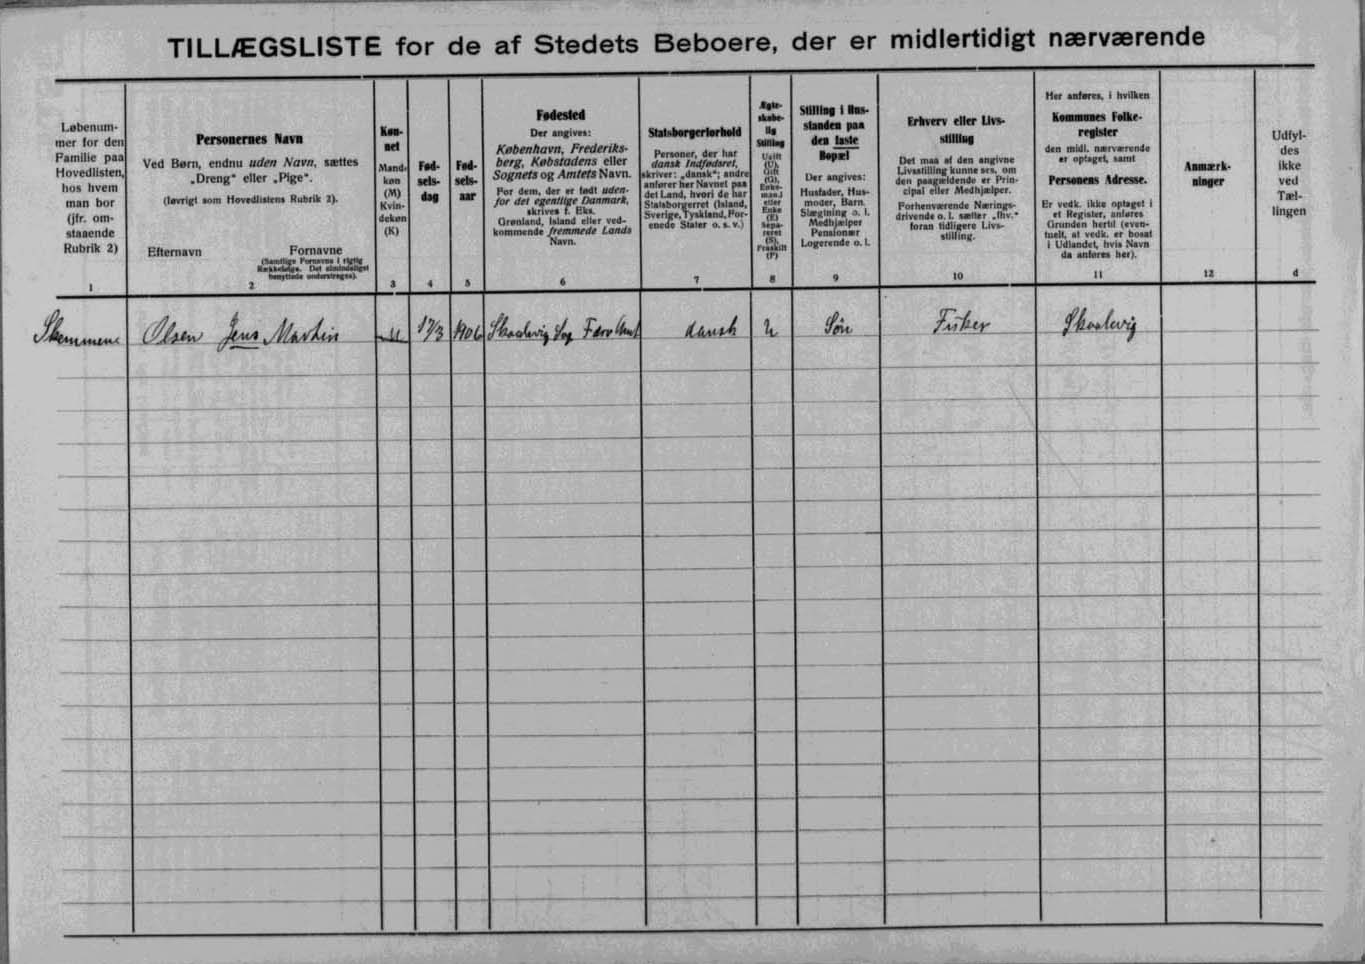 TILLÆGSLISTE for de af Stedets Beboere, der er midlertidigt nærværende
Løbenum-
mer for den
Familie paa
Hovedlisten,
hos hvem
man bor
(jfr. om-
staaende
Rubrik 2)
1
Personernes Navn
Ved Børn, endnu uden Navn, sættes
„Dreng“ eller „Pige“.
(Iøvrigt som Hovedlistens Rubrik 2).
Efternavn Fornavne
(Samtlige Fornavne i rigtig
Rækkefølge. Det almindeligst
benyttede understreges).
2
Køn-
net
Mand-
køn
(M)
Kvin-
dekøn
(K)
3
Fød-
sels-
dag
4
Fød-
sels-
aar
5
Fødested
Der angives:
København, Frederiks-
berg, Købstadens eller
Sognets og Amtets Navn.
For dem, der er født uden-
for det egentlige Danmark,
skrives f. Eks.
Grønland, Island eller ved-
kommende fremmede Lands
Navn.
6
Statsborgerforhold
Personer, der har
dansk Indfødsret,
skriver: „dansk“; andre
anfører her Navnet paa
det Land, hvori de har
Statsborgerret (Island,
Sverige, Tyskland, For-
enede Stater o. s. v.)
7
Ægte-
skabe-
lig
Stilling
Ugift
(U),
Gift
(G),
Enke-
mand
eller
Enke
(E)
Sepa-
reret
(S),
Fraskilt
(F)
8
Stilling i Hus-
standen paa
den faste
Bopæl
Der angives:
Husfader, Hus-
moder, Barn,
Slægtning o. l.
Medhjælper
Pensionær
Logerende o. l.
9
Erhverv eller Livs-
stilling
Det maa af den angivne
Livsstilling kunne ses, om
den paagældende er Prin-
cipal eller Medhjælper.
Forhenværende Nærings-
drivende o. l. sætter „fhv.“
foran tidligere Livs-
stilling.
10
Her anføres, i hvilken
Kommunes Folke-
register
den midl. nærværende
er optaget, samt
Personens Adresse.
Er vedk. ikke optaget i
et Register, anføres
Grunden hertil (even-
tuelt, at vedk. er bosat
i Udlandet, hvis Navn
da anføres her).
11
Anmærk-
ninger
12
Udfyl-
des
ikke
ved
Tæl-
lingen
d
Skemmene Olsen Jens Martin M 17/3 1906 Skaalevig Sog Færø Amt dansk U Søn Fisker Skaalevig